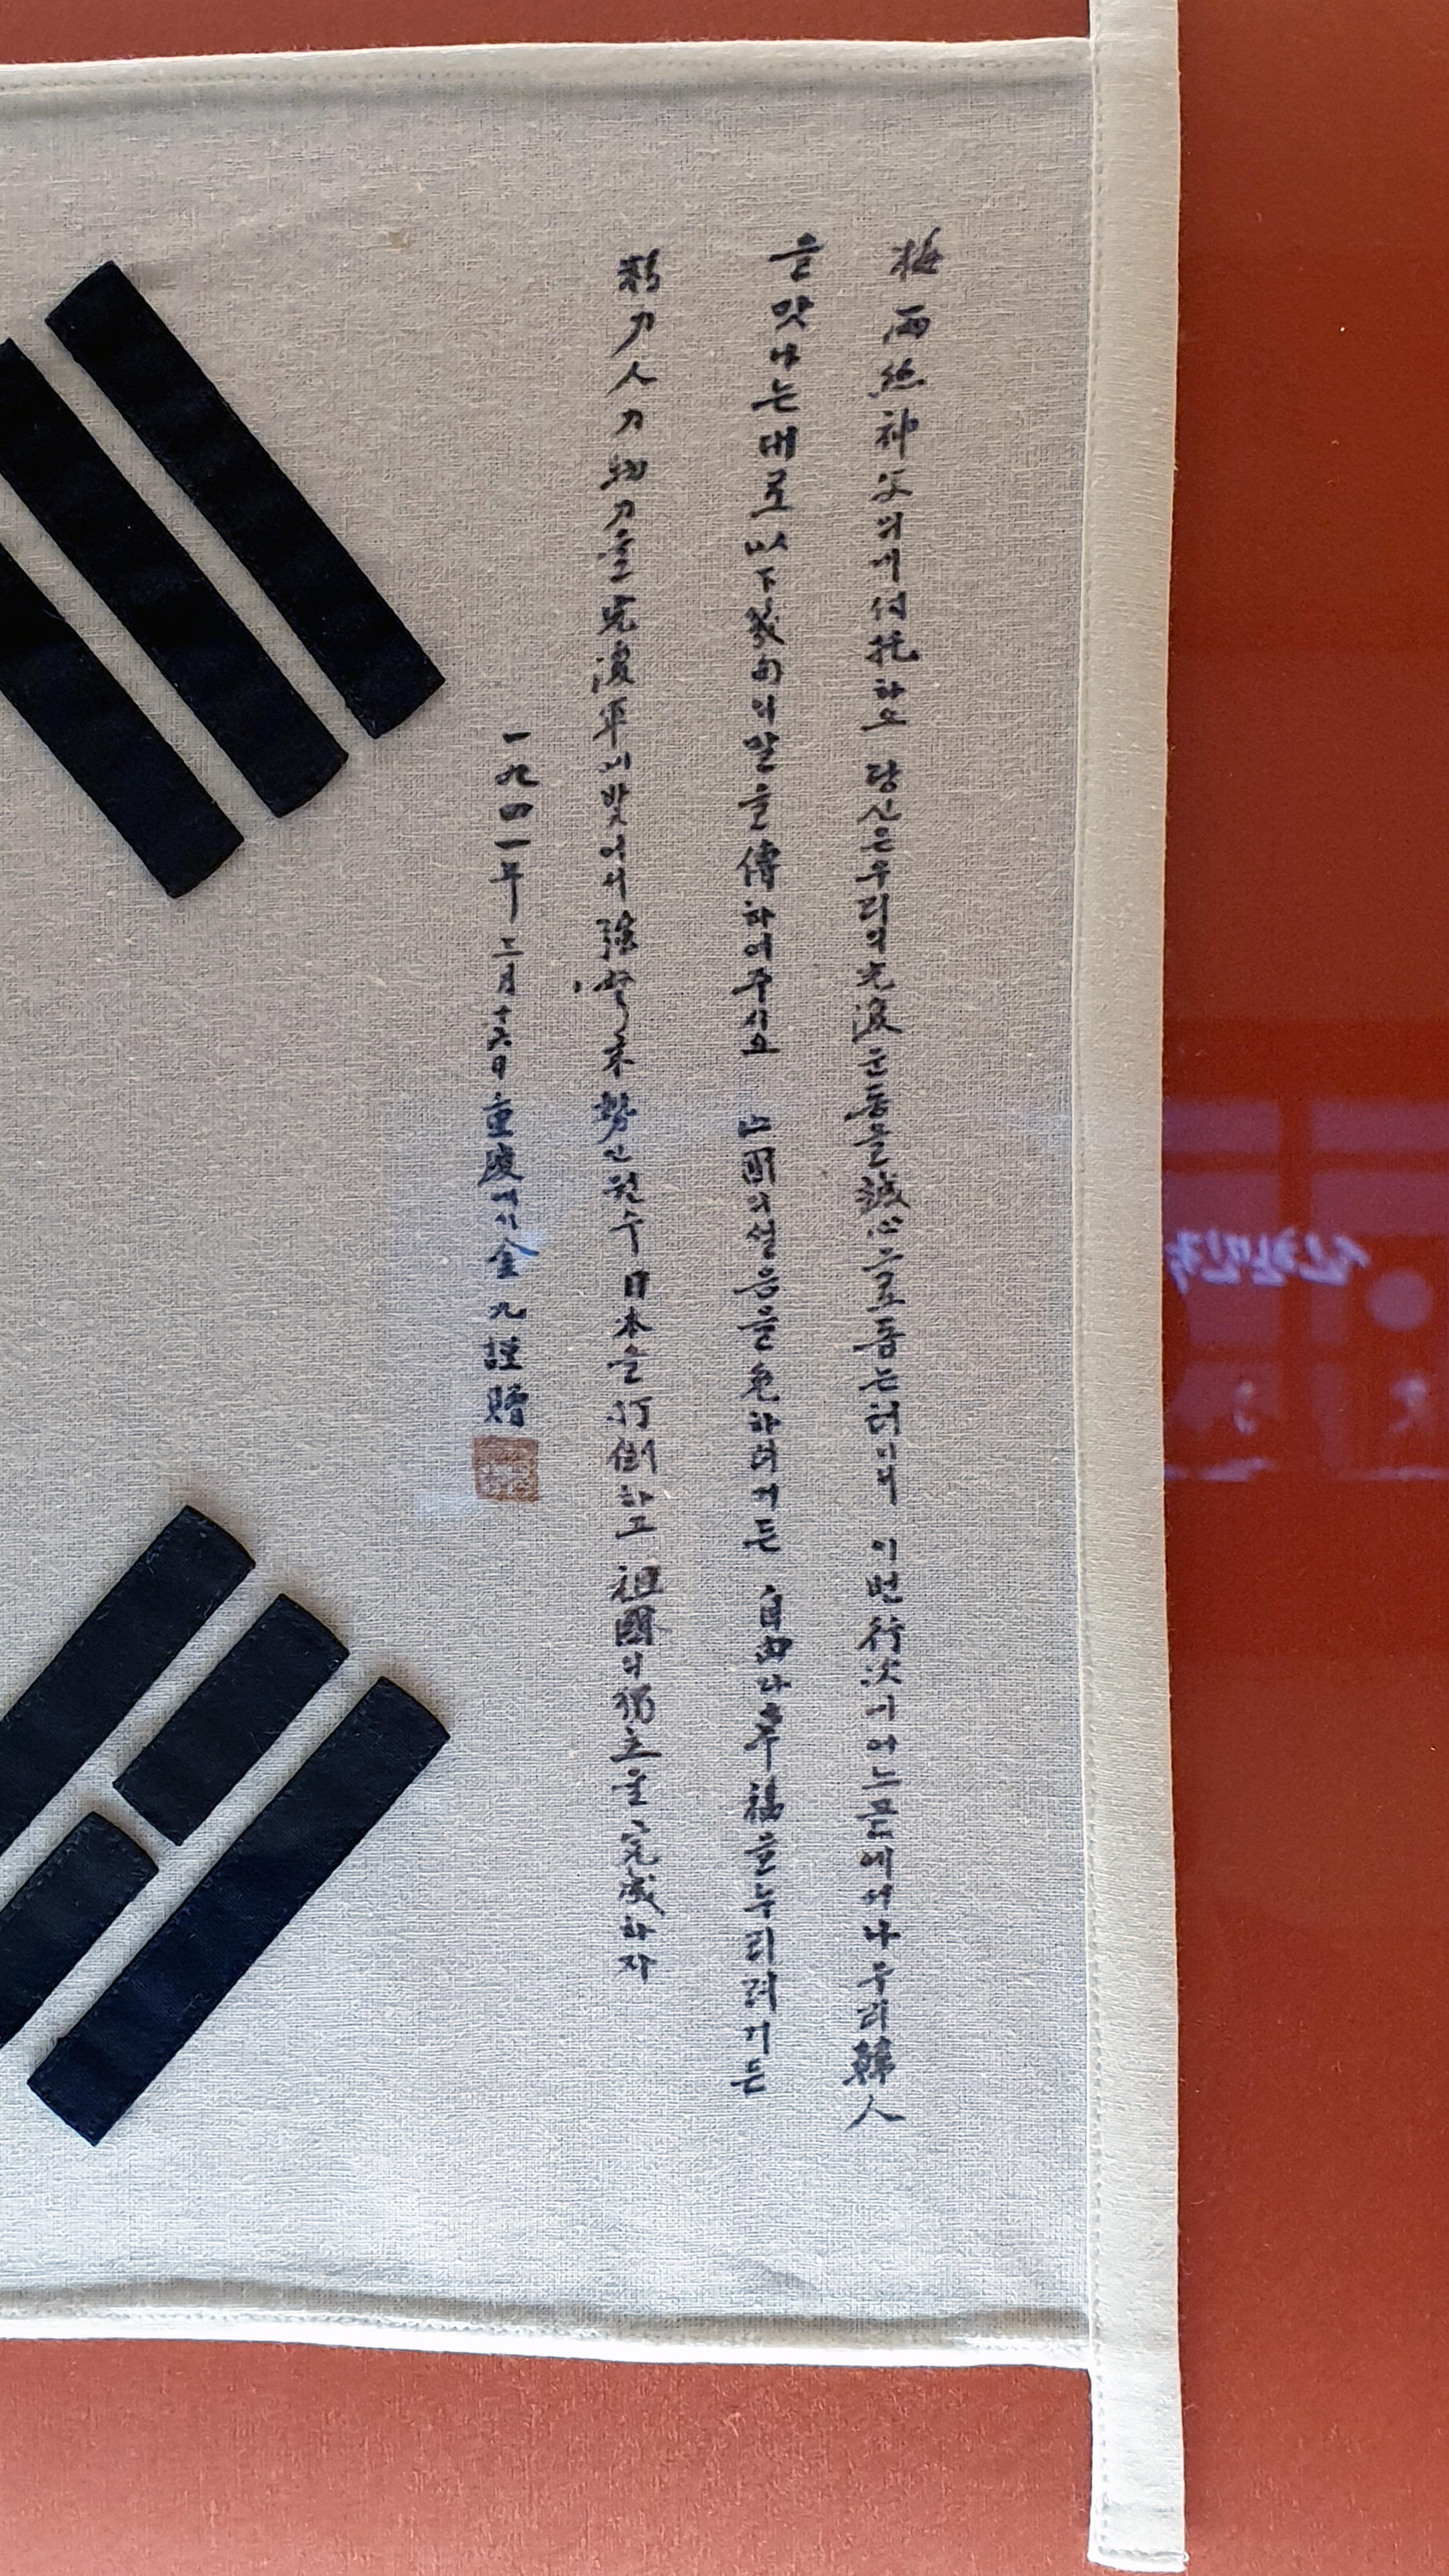 梅雨絲神父의게付托하오 당신은우리의光復운동을誠心으로돕는터이니 이번行次의어느곧에서나우리韓人
을맛나는대로以下幾句의말을傳하여주시오 亡國의설음을免하려거든 自由와幸福을누리려거든
精力人力物力을光復軍에밧여서强弩末勢인원수日本을打倒하고祖國의獨立을完成하자
一九四一年三月十六日重慶에서金九謹贈